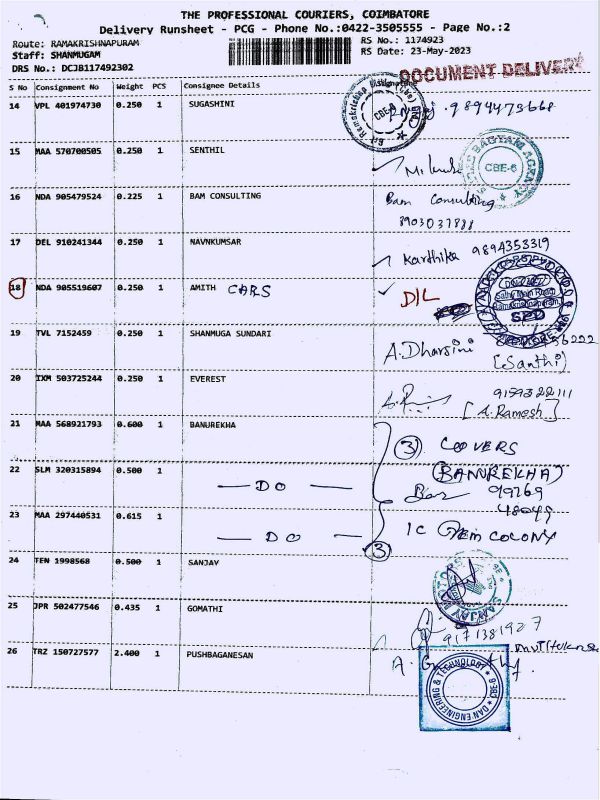 THE PROFESSIONAL COURIERS, COIMBATORE
Delivery Runsheet - PCG - Phone No.:0422-3505555 - Page No.:2
Route: RAMAKRISHNAPURAM
RS No.: 1174923
Staff: SHANMUGAM
RS Date: 23-May-2023
DRS No.: DCJB1174923O2
DOCUMENT DELIVERY
S No Consignment No Weight PCS Consignee Details
14 VPL 401974730 0.250 1 SUGASHINI 9894473668
CBE-6
15 MAA 570700505 0.250 1 SENTHIL
CBE-6
16 NDA 905479524 0.225 1 BAM CONSULTING Bam Consulting
8903037888
17 DEL 910241344 0.250 1 NAVNKUMSAR Karthika 9894353319
18 NDA 905519607 0.250 1 AMITH CARS DIL
Sathy Main Road
Ramakrishnapuram
19 TVL 7152459 0.250 1 SHANMUGA SUNDARI A.Dharsini
(Santhi)
20 IXM 503725244 0.250 1 EVEREST 9159322111
[A.Ramesh]
21 MAA 568921793 0.600 1 BANUREKHA (3) COVERS
(BANUREKHA)
22 SLM 320315894 0.500 1 — DO — 99769
48099
23 MAA 297440531 0.615 1 — DO — COLONY
(3)
24 TEN 1998568 0.500 1 SANJAV
SANJAY MOTORS
25 JPR 502477546 0.435 1 GOMATHI
9171381927
26 TRZ 150727577 2.400 1 PUSHBAGANESAN
ENGINEERING & TECHNOLOGY